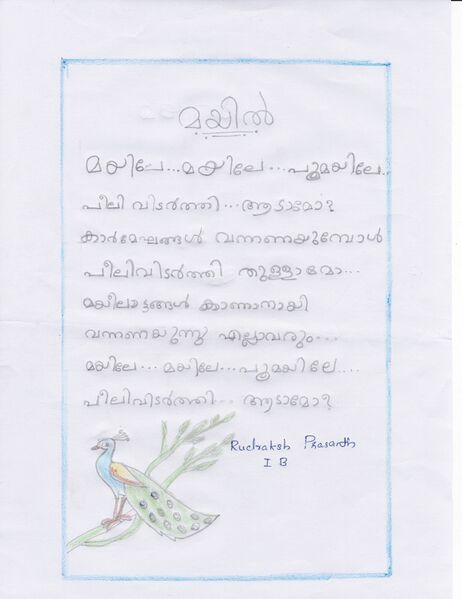 മയിൽ
മയിലേ...മയിലേ...പൂമയിലേ..
പീലി വിടർത്തി...ആടാമോ?
കാർമേഘങ്ങൾ വന്നണയുമ്പോൾ
പീലിവിടർത്തി തുള്ളാമോ...
മയിലാട്ടങ്ങൾ കാണാനായി
വന്നണയുന്നു എല്ലാവരും...
മയിലേ...മയിലേ...പൂമയിലേ....
പീലിവിടർത്തി... ആടാമോ?
Ruchaksh Prasanth
I B